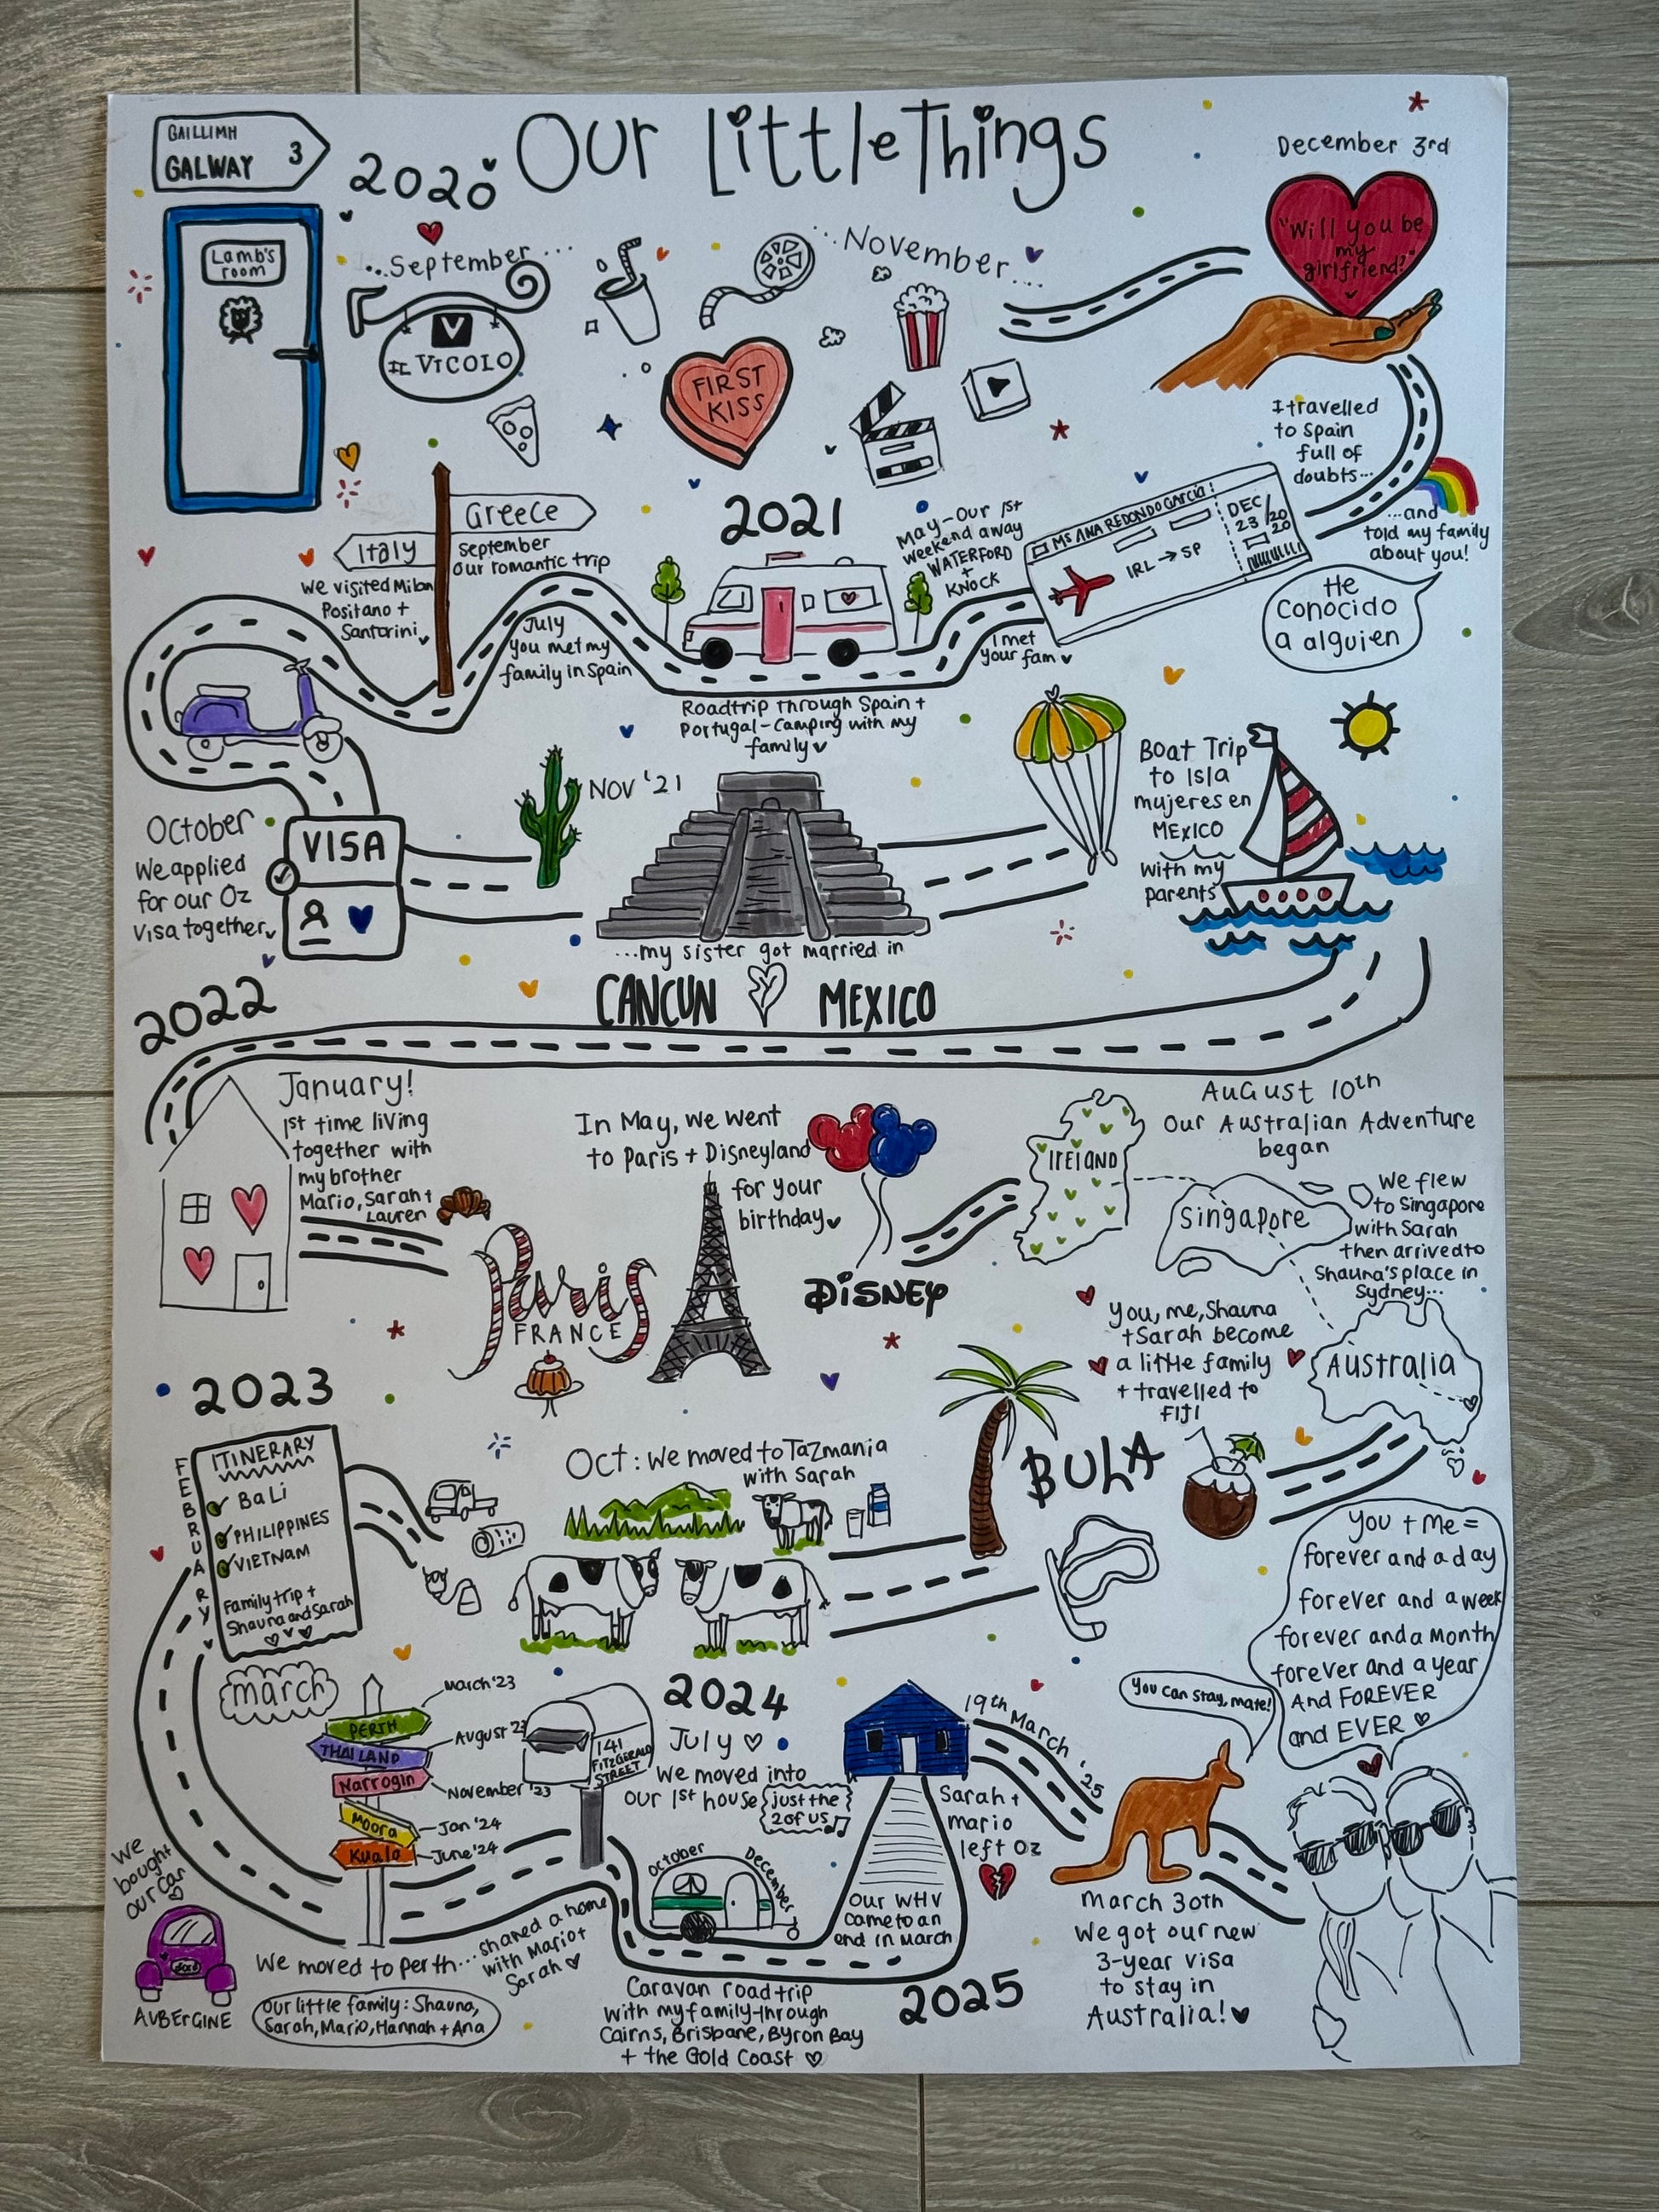 Our Little Things
GAILLIMH
GALWAY 3
2020
Lamb's
room
...September...
IL VICOLO
FIRST
KISS
...November...
December 3rd
"Will you be
my
girlfriend?"
I travelled
to Spain
full of
doubts...
...and
told my family
about you!
He
Conocido
a alguien
MS ANA REDONDO GARCIA
IRL → SP
DEC
23/20
20
I met
your fam
2021
May - Our 1st
weekend away
WATERFORD
+
KNOCK
Roadtrip through Spain +
Portugal - Camping with my
family
July
you met my
family in Spain
Greece
September
our romantic trip
Italy
We visited Milan
Positano +
Santorini
October
We applied
for our Oz
Visa together
VISA
NOV '21
...my sister got married in
CANCUN MEXICO
Boat Trip
to Isla
mujeres en
MEXICO
with my
parents
2022
January!
1st time living
together with
my brother
Mario, Sarah +
Lauren
Paris
FRANCE
In May, we went
to Paris + Disneyland
for your
birthday
DISNEY
IRELAND
August 10th
Our Australian Adventure
began
Singapore
We flew
to Singapore
with Sarah
then arrived to
Shauna's place in
Sydney...
AUSTRALIA
You, me, Shauna
+ Sarah become
a little family
+ travelled to
FIJI
BULA
Oct: We moved to Tazmania
with Sarah
2023
FEBRUARY
ITINERARY
BALI
PHILIPPINES
VIETNAM
Family trip +
Shauna and Sarah
march
PERTH
March '23
THAILAND
August '23
Narrogin
November '23
Moora
Jan '24
Kuala
June '24
We
bought
our car
ford
AUBERGINE
We moved to perth...
shared a home
with Mario +
Sarah
our little family: Shauna,
Sarah, Mario, Hannah + Ana
141
FITZGERALD
STREET
2024
July
We moved into
our 1st house
just the
2 of us
October
December
Caravan roadtrip
with my family through
Cairns, Brisbane, Byron Bay
+ the Gold Coast
2025
Our WHV
came to an
end in March
19th March '25
Sarah +
mario
left Oz
You can stay, mate!
March 30th
We got our new
3-year visa
to stay in
Australia!
you + me =
forever and a day
forever and a week
forever and a month
forever and a year
And FOREVER
and EVER